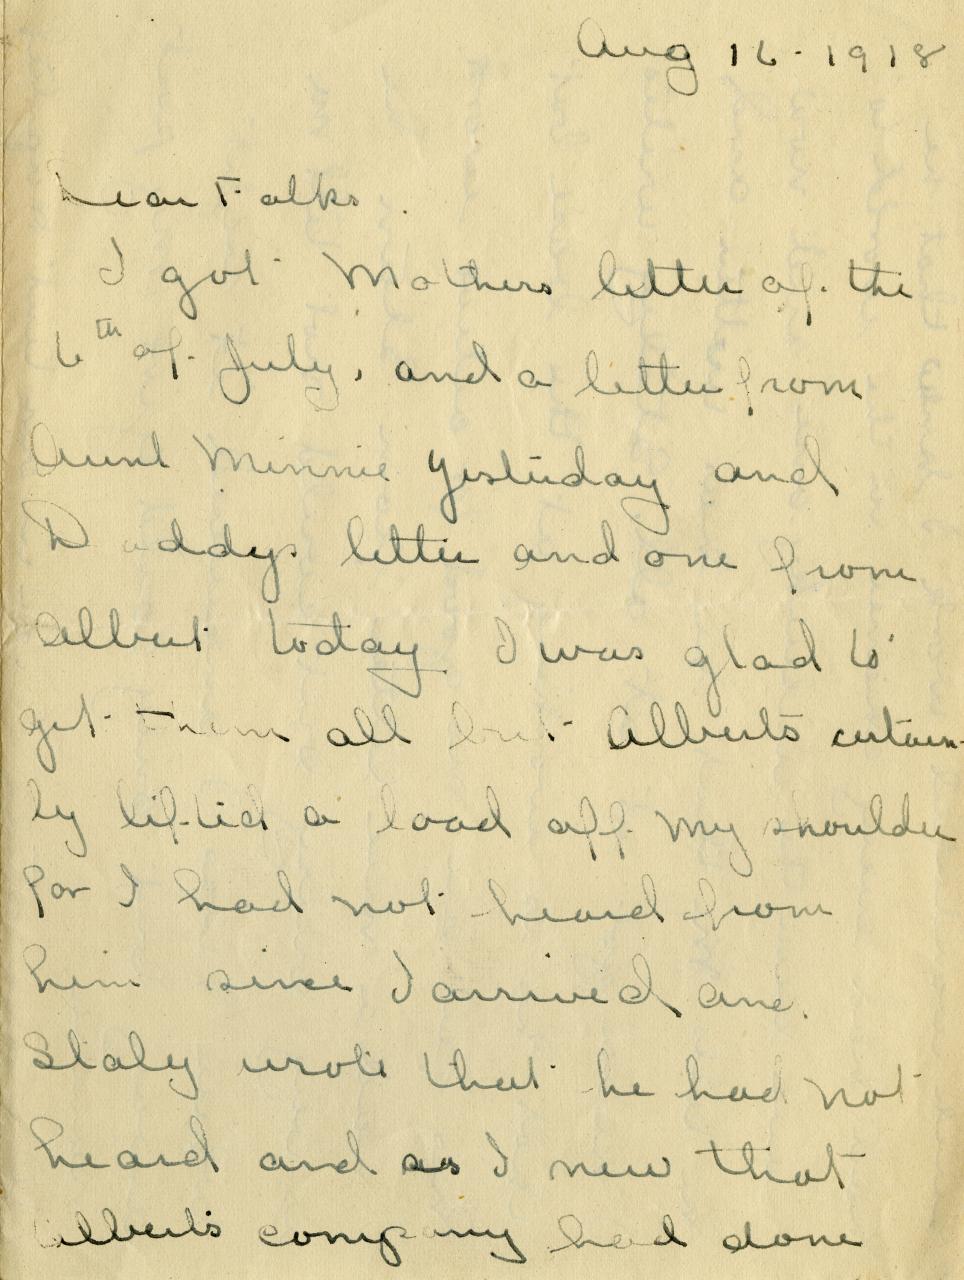 Aug 16 - 1918
Dear Folks.
I got Mothers letter of the
6th of July, and a letter from
Aunt Minnie yesterday and
Daddys letter and one from
Albert today I was glad to
get them all but Alberts certain-
ly lifted a load off my shoulder
for I had not heard from
him since I arrived and.
Staly wrote that he had not
heard and as I new that
Alberts company had done